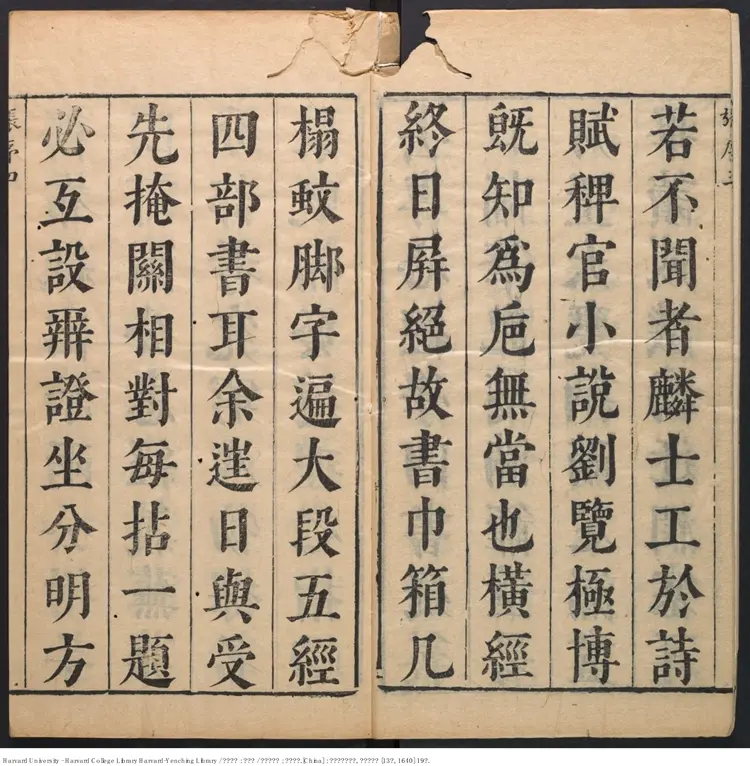 若不聞者麟士工於詩
賦稗官小說劉覽極博
旣知爲巵無當也橫經
終日屛絕故書巾箱几
榻蚊脚字遍大段五經
四部書耳余遳日與受
先掩關相對每拈一題
必互設辨證坐分明方
Harvard University - Harvard College Library Harvard-Yenching Library / ???? : ??? / ????? ; ????.[China] : ???????, ????? [13?, 1640] 19?.